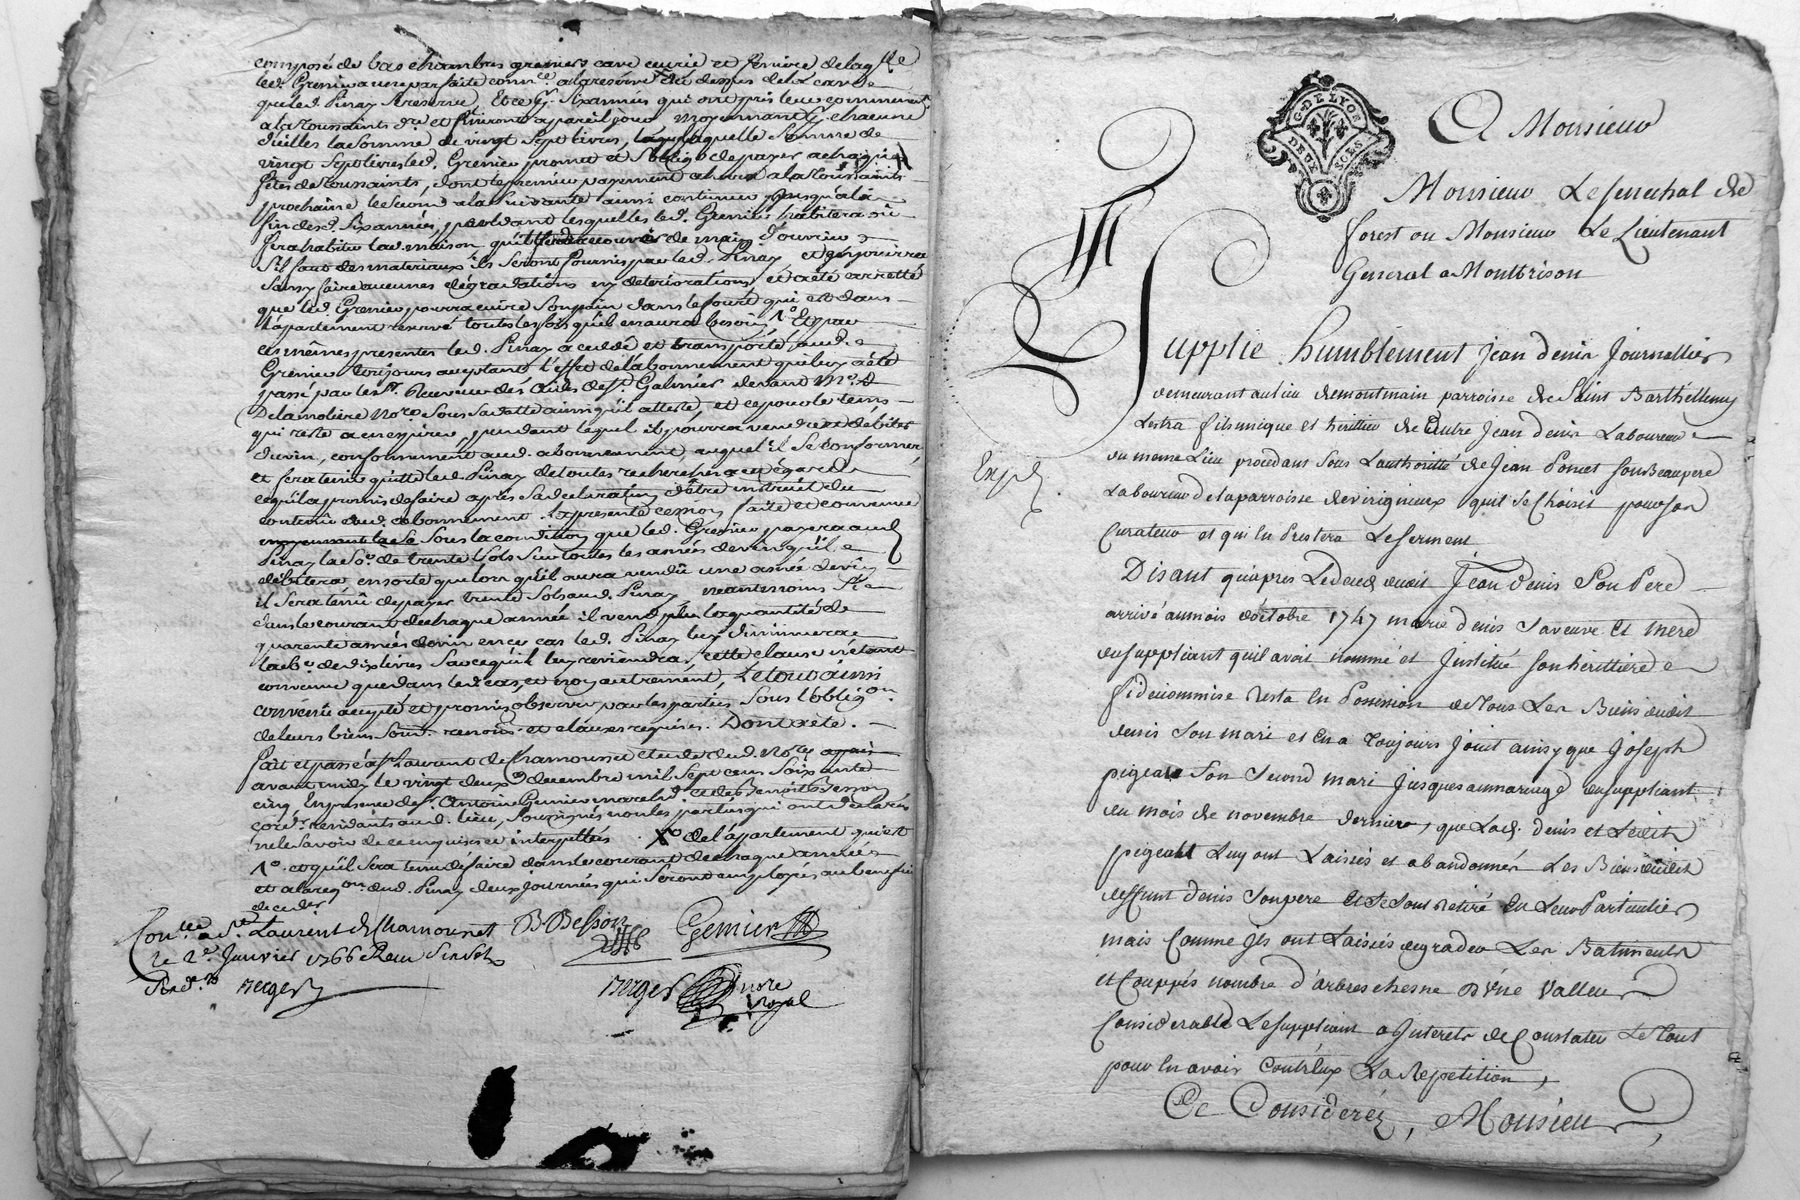 composé de bas chambres greniers cave ecurie et feniere de laqlle
led. Grenier a une parfaite connce. a la reserve du dessus de la cave
que led. Pinay se reserve, Et ce pr. six années qui ont pris leur commencemt.
a la toussaints dre et finiront a pareil jour moyennant pr. chacune
d'icelles la somme de vingt sept livres, laquelle somme de
vingt sept livres led. Grenier promet et s'oblige de payer a chaque
fêtes de toussaints, dont le premier payement a la toussaints
prochaine le second a la suivante ainsi continuer jusqu'a la
fin desd. six années, pendant lesquelles led. Grenier habitera ou
fera habiter lad. maison qu'il de main d'ouvrier
s'il faut des materiaux ils seront fournis par led. Pinay, et en jouira
sans y faire aucunes dégradations ny deteriorations, et a été arretté
que led. Grenier pourra cuire son pain dans le four qui est dans
l'apartement reservé toutes les fois qu'il en aura besoin, 1° Et par
ces mêmes presentes led. Pinay a ceddé et transporté aud.
Grenier toujours acceptant l'effet de l'abonnement qui luy a été
passé par les Sr. Receveur des aides de St. Galmier devant Me.
Delamolière Nore. sous sa datte ainsi qu'il atteste, et ce pour le tems
qui reste a en expirer, pendant lequel il pourra vendre et débiter
du vin, conformement aud. abonnement, auquel il se conformera,
et fera tenir quitte led. Pinay de toutes recherches a cet égard
ce qu'il a promis de faire après sa declaration d'être instruit du
contenu aud. abonnement. la presente cession faite et convenue
sous la condition que led. Grenier payera aud.
Pinay la se. de trente sols sur toutes les anées de vin qu'il
débitera en sorte que lors qu'il aura vendû une anée de vin
il sera tenû de payer trente sols aud. Pinay, neantmoins si
dans le courant de chaque année il vend plus la quantité de
quarente anées de vin en ce cas led. Pinay luy diminuera
la se. de dix livres sur ce qu'il luy reviendra, cette clause n'étant
convenue que dans led. cas, et non autrement, Le tout ainsi
convenû accepté et promis observer par les parties sous l'obligon.
de leurs biens soum. renonc. et clauses requises. Dont acte.
fait et passé a St. Laurent de Chamousset etude dud. Nore. apais
avant midy le vingt deux decembre mil sept cens soixante
cinq En presence de Sr. Antoine Gemier marchd. et de Benoit Besson
cordr. residants aud. lieu, soussignés non les parties qui ont declarés
ne le savoir de ce enquises et interpellés. X° de l'apartement qui est
1° et qu'il sera tenu de faire dans le courant de chaque année
et a la reqon. dud. Pinay deux journées qui seront employées au benefice
de ced.
Contlé a St. Laurent de Chamousset B Besson Gemier
le 2e Janvier 1766 Reçu
Berger Berger nore
royal
G. DE LYON
DEUX SOLS
A Monsieur
Monsieur Le senechal de
forest ou Monsieur Le Lieutenant
General a Montbrison
Supplie humblement Jean denis Journallier
demeurant au lieu de montmain parroisse de Saint Barthellemy
Lestra fils unique et heritier de autre Jean denis Laboureur
du meme Lieu procedant sous Lauthoritté de Jean Poncet son Beaupere
Expn.
Laboureur de la parroisse de virigneux quil se Choisit pour son
Curateur et qui En Prestera Le serment
Disant quapres Le deced dudit Jean denis Son Pere
arrivé au mois doctobre 1747 marie denis Sa veuve Et mere
du suppliant quil avoit nommé et Justitué son herittiere
fideicommise resta En Possession de Tous Les Biens dudit
denis son mari et En a Toujours Jouit ainsy que Joseph
pigeat Son Second mari Jusques au mariage du suppliant
du mois de novembre dernier, que Lad. denis et Ledit
pigeat Luy ont Laissés et abandonnés Les Biens dudit
deffunt denis son pere et se sont Retiré En Leur Particulier
mais Comme ils ont Laissés degrader Les Batiments
et Couppés nombre d'arbres chesne d'une valleur
Considerable Le suppliant a Interets de Constater Le Tout
pour En avoir Contr'eux La Repetition,
Ce Consideréz, Monsieur